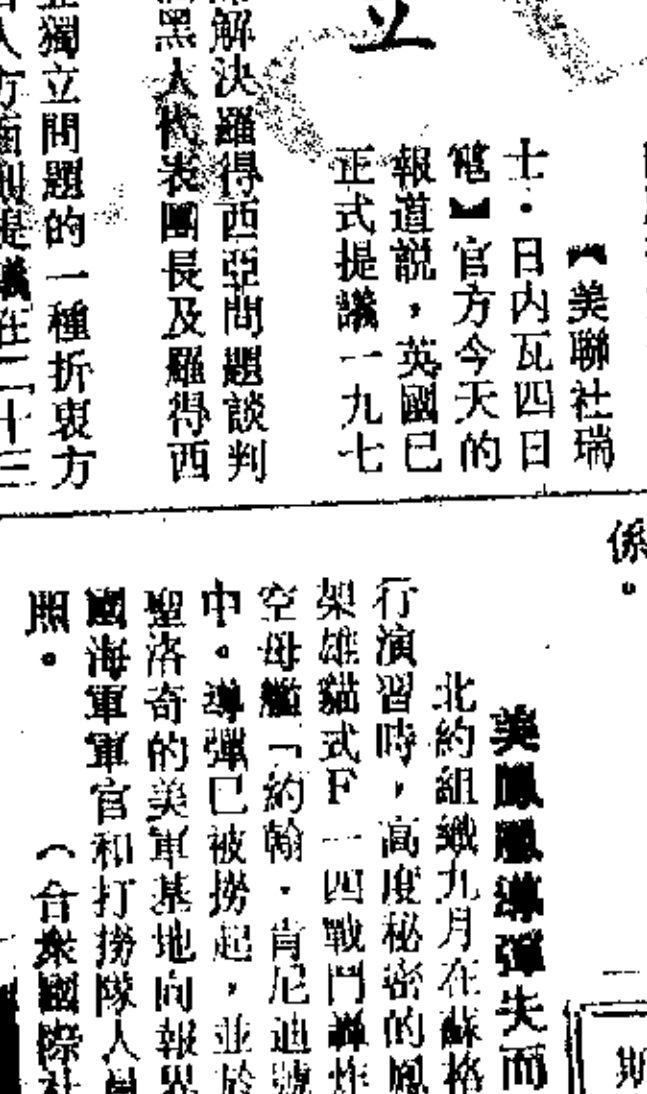 立
【美聯社瑞
士・日内瓦四日
電】官方今天的
報道說，英國已
正式提議一九七
解決羅得西亞問題談判
黑人代表團長及羅得西
獨立問題的一種折衷方
人方面則提議在二十三
係。
美鳳凰導彈失而
北約組織九月在蘇格
行演習時，高度秘密的鳳
架雄貓式F一四戰鬥轟炸
空母艦「約翰・肯尼迪號
中。導彈已被撈起，並於
聖洛奇的美軍基地向報界
國海軍軍官和打撈隊人員
照。
（合衆國際社
斯